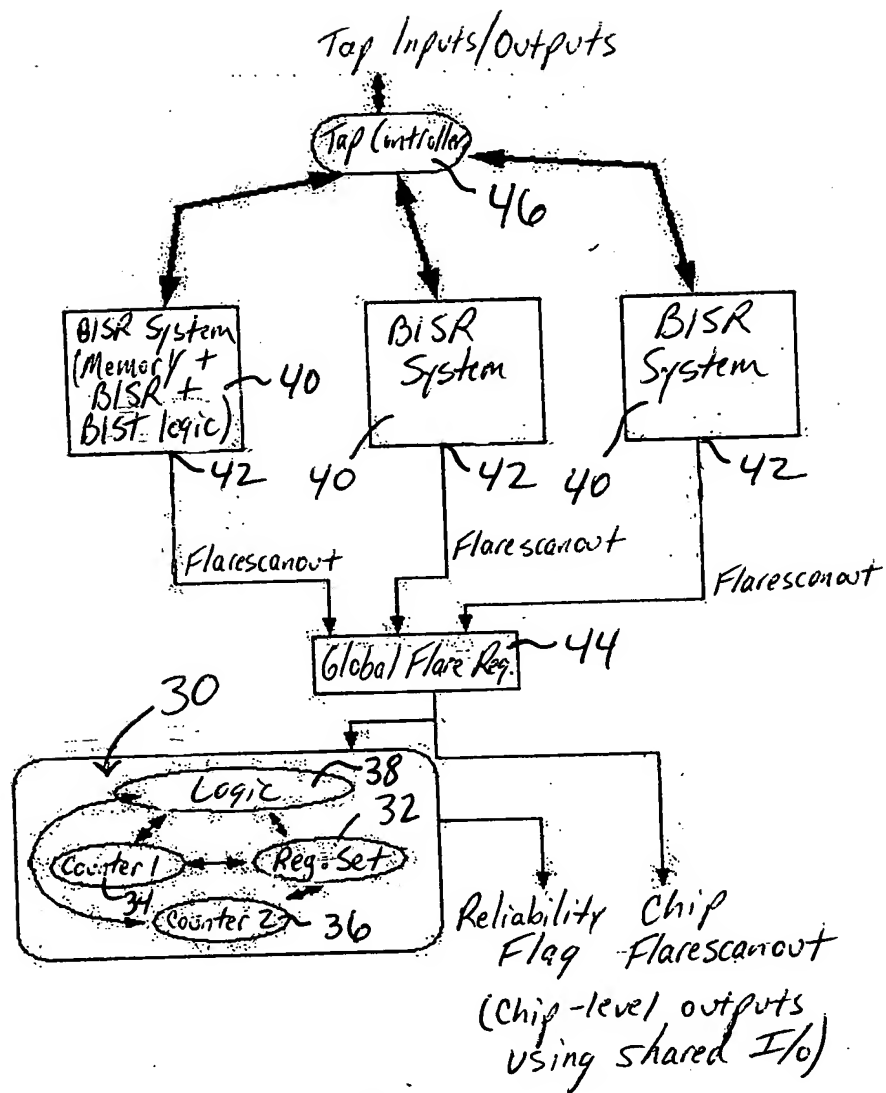 Tap Inputs/Outputs
Tap Controller
46
BISR System
(Memory +
BISR +
BIST logic)
40
BISR
System
40
BISR
System
40
42
42
42
Flarescanout
Flarescanout
Flarescanout
Global Flare Reg.
44
30
Logic
38
32
Counter 1
34
Reg. Set
Counter 2
36
Reliability
Flag
Chip
Flarescanout
(Chip-level outputs
using shared I/o)